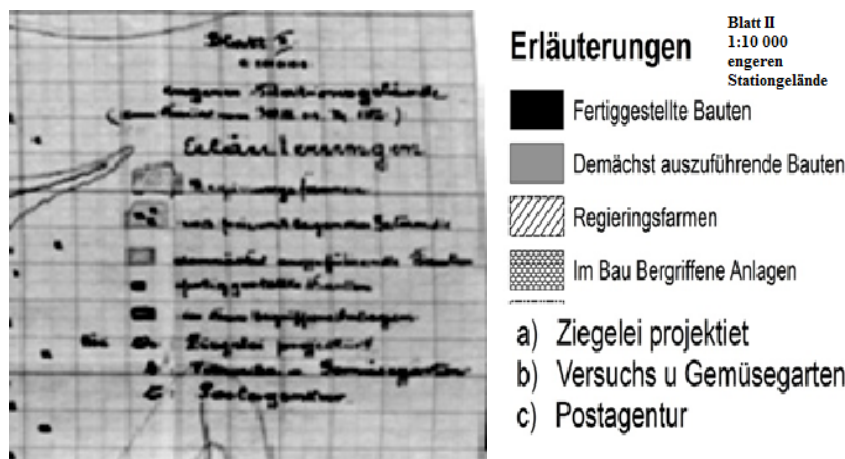 Blatt II
engeren Stationsgelände
Erläuterungen
Regierungsfarmen
demnächst auszuführende Bauten
fertiggestellte Bauten
in Bau begriffene Anlagen
Ziegelei projektiert
b. Versuchs u. Gemüsegarten
c. Postagentur
Erläuterungen
Blatt II
1:10 000
engeren
Stationgelände
Fertiggestellte Bauten
Demächst auszuführende Bauten
Regieringsfarmen
Im Bau Bergriffene Anlagen
a) Ziegelei projektiet
b) Versuchs u Gemüsegarten
c) Postagentur